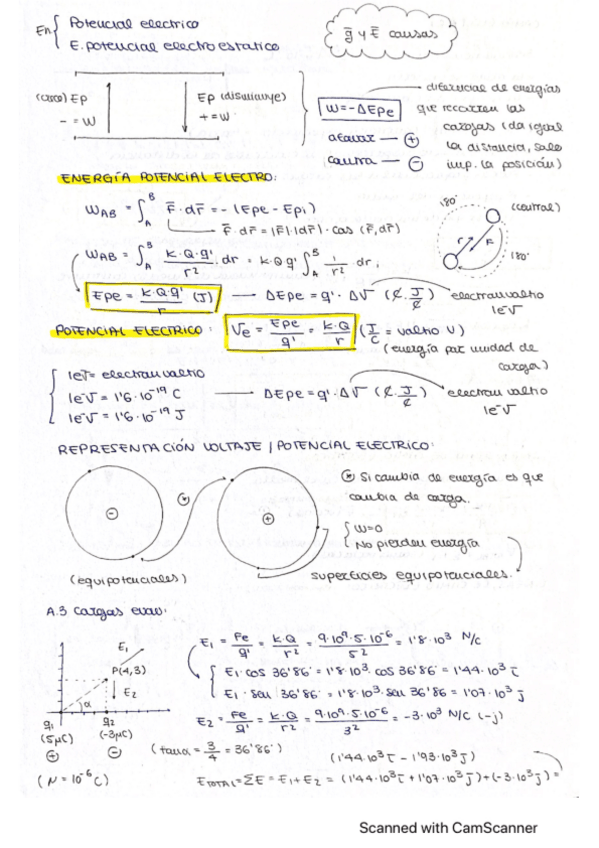 En { Potencial electrico
E. potencial electroestatico
ḡ y Ē causas
(crece) Ep
- = W
Ep (disminuye)
+ = W
W = - ΔEpe
atavar — ⊕
contra — ⊖
diferencial de energías
que recorren las
cargas (da igual
la distancia, solo
imp. la posición)
ENERGÍA POTENCIAL ELECTRO:
W_AB = ∫_A^B F̄ · dr̄ = - (Epe - Epi)
F̄ · dr̄ = |F̄| · |dr̄| · cos (F̄, dr̄)
W_AB = ∫_A^B K·Q·q'/r² · dr = K·Q q' ∫_A^B 1/r² · dr ;
180° (central)
r F
180°
Epe = K·Q·q'/r (J) — ΔEpe = q' · ΔV (C · J/C) electronvoltio
1eV
POTENCIAL ELECTRICO: Ve = Epe/q' = K·Q/r (J/C = voltio V)
(energía por unidad de
carga)
1eV = electronvoltio
1eV = 1'6 · 10⁻¹⁹ C
1eV = 1'6 · 10⁻¹⁹ J
ΔEpe = q' · ΔV (C · J/C) electronvoltio
1eV
REPRESENTACIÓN VOLTAJE / POTENCIAL ELECTRICO:
⊖
⊕
Si cambia de energía es que
cambia de carga.
W=0
No pierden energía
(equipotenciales)
superficies equipotenciales.
A.3 Cargas evau:
E1
P(4,3)
E2
α
q1 q2
(5μC) (-3μC)
⊕ ⊖
E1 = Fe/q' = K·Q/r² = 9·10⁹·5·10⁻⁶/5² = 1'8·10³ N/C
E1·cos 36'86 = 1'8·10³·cos 36'86 = 1'44·10³ i
E1·sen 36'86 = 1'8·10³·sen 36'86 = 1'07·10³ j
E2 = Fe/q' = K·Q/r² = 9·10⁹·5·10⁻⁶/3² = -3·10³ N/C (-j)
(tanα = 3/4 = 36'86°)
(1'44·10³ i - 1'93·10³ j)
(N = 10⁻⁶ C)
E_TOTAL = ΣE = E1 + E2 = (1'44·10³ i + 1'07·10³ j) + (-3·10³ j) =
Scanned with CamScanner